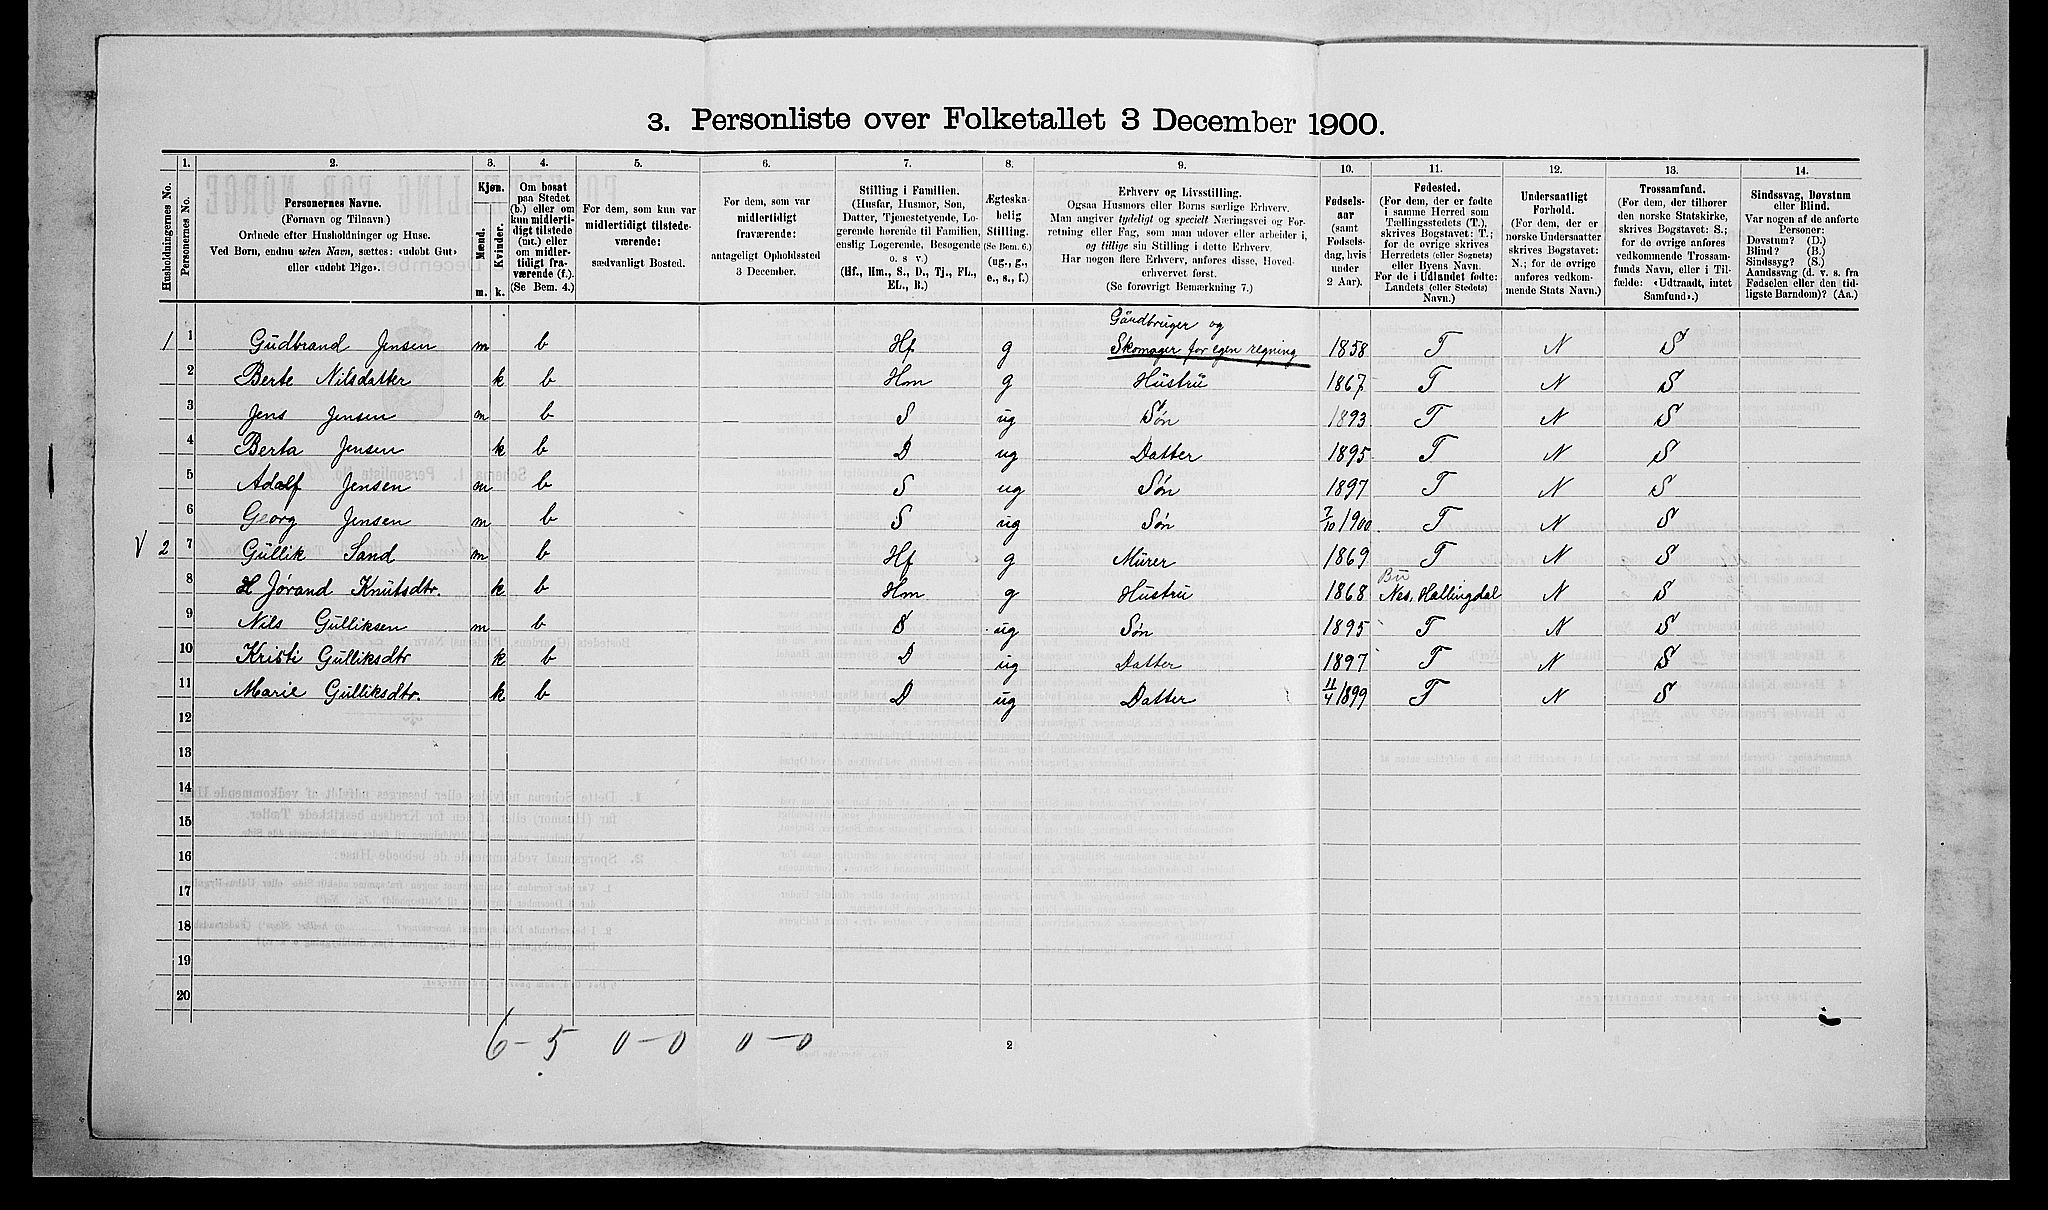 3. Personliste over Folketallet 3 December 1900.
1. 2. 3. 4. 5. 6. 7. 8. 9. 10. 11. 12. 13. 14.
Husholdningernes No.
Personernes No.
Personernes Navne.
(Fornavn og Tilnavn.)
Ordnede efter Husholdninger og Huse.
Ved Børn, endnu uden Navn, sættes: «udøbt Gut»
eller «udøbt Pige».
Kjøn.
Mænd. Kvinder.
m. k.
Om bosat
paa Stedet
(b.) eller om
kun midlerti-
digt tilstede
(mt.) eller
om midler-
tidigt fra-
værende (f.).
(Se Bem. 4.)
For dem, som kun var
midlertidigt tilstede-
værende:
sædvanligt Bosted.
For dem, som var
midlertidigt
fraværende:
antageligt Opholdssted
3 December.
Stilling i Familien.
(Husfar, Husmor, Søn,
Datter, Tjenestetyende, Lo-
gerende hørende til Familien,
enslig Logerende, Besøgende
o. s. v.)
(Hf., Hm., S., D., Tj., FL.,
EL., B.)
Ægteska-
belig
Stilling.
(Se Bem. 6.)
(ug., g.,
e., s., f.)
Erhverv og Livsstilling.
Ogsaa Husmors eller Børns særlige Erhverv.
Man angiver tydeligt og specielt Næringsvei og For-
retning eller Fag, som man udøver eller arbeider i,
og tillige sin Stilling i dette Erhverv.
Har nogen flere Erhverv, anføres disse, Hoved-
erhvervet først.
(Se forøvrigt Bemærkning 7.)
Fødsels-
aar
(samt
Fødsels-
dag, hvis
under
2 Aar).
Fødested.
(For dem, der er fødte
i samme Herred som
Tællingsstedets (T.),
skrives Bogstavet: T.;
for de øvrige skrives
Herredets (eller Sognets)
eller Byens Navn.
For de i Udlandet fødte:
Landets (eller Stedets)
Navn.)
Undersaatligt
Forhold.
(For dem, der er
norske Undersaatter
skrives Bogstavet:
N.; for de øvrige
anføres vedkom-
mende Stats Navn.)
Trossamfund.
(For dem, der tilhører
den norske Statskirke,
skrives Bogstavet: S.;
for de øvrige anføres
vedkommende Trossam-
funds Navn, eller i Til-
fælde: «Udtraadt, intet
Samfund».)
Sindssvag, Døvstum
eller Blind.
Var nogen af de anførte
Personer:
Døvstum? (D.)
Blind? (B.)
Sindssyg? (S.)
Aandssvag (d. v. s. fra
Fødselen eller den tid-
ligste Barndom)? (Aa.)
Gårdbruger og
1 1 Gudbrand Jensen m b Hf g Skomager for egen regning 1858 T N S
2 Berte Nilsdatter k b Hm g Hustru 1867 T N S
3 Jens Jensen m b S ug Søn 1893 T N S
4 Berta Jensen k b D ug Datter 1895 T N S
5 Adolf Jensen m b S ug Søn 1897 T N S
6 Georg Jensen m b S ug Søn 7/10 1900 T N S
V 2 7 Gullik Sand m b Hf g Murer 1869 T N S
Bu
8 Jørand Knutsdtr. k b Hm g Hustru 1868 Nes, Hallingdal N S
9 Nils Gulliksen m b S ug Søn 1895 T N S
10 Kristi Gulliksdtr k b D ug Datter 1897 T N S
11 Marie Gulliksdtr. k b D ug Datter 11/4 1899 T N S
12
13
14
15
16
17
18
19
20
6 - 5 0 - 0 0 - 0
2